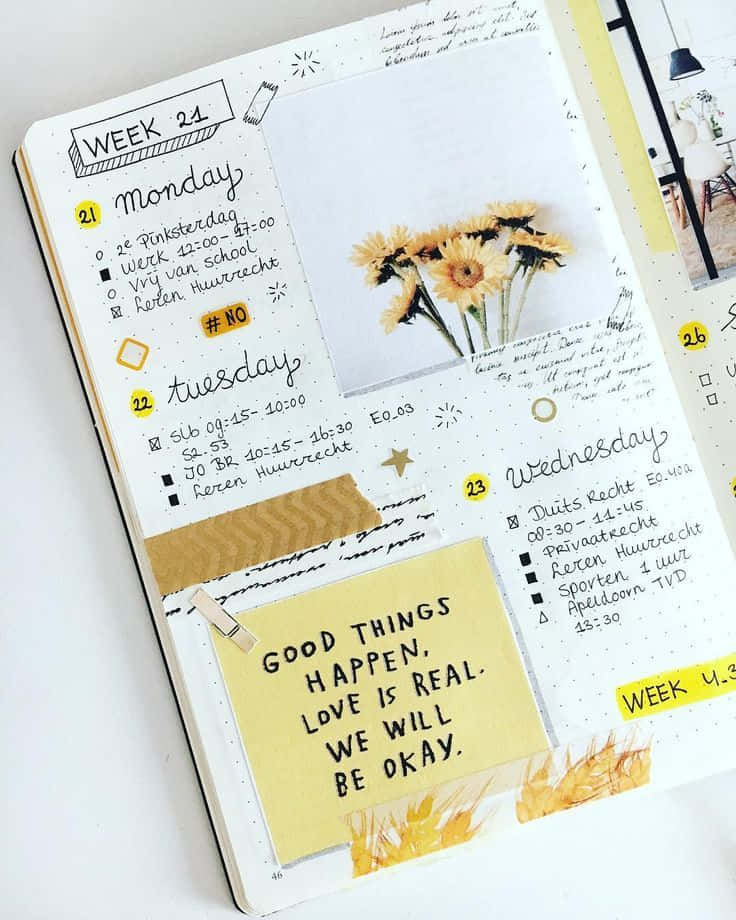 WEEK 21
21 Monday
2e Pinksterdag
Werk 12:00 - 17:00
Vrij van school
Leren Huurrecht
#NO
22 Tuesday
SLB 09:15 - 10:00
S2.53
JO BR 10:15 - 16:30 E0_03
Leren Huurrecht
23 Wednesday
Duits Recht E0.40a
08:30 - 11:45
Privaatrecht
Leren Huurrecht
Sporten 1 uur
Apeldoorn TVD
13:30
GOOD THINGS
HAPPEN,
LOVE IS REAL.
WE WILL
BE OKAY.
WEEK 4_3
46
26